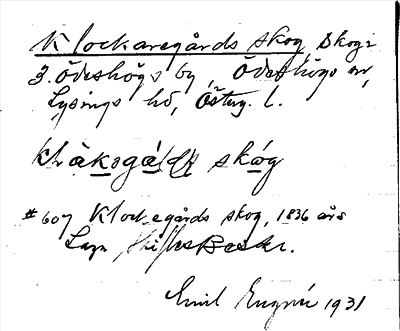 Klockaregårds skog Skog:
3. Ödeshögs by, Ödeshögs sn,
Lysings hd, Österg. l.
skóg
# 607 Klockegårds skog, 1836 års
Laga skiftesBeskr.
Emil 1931